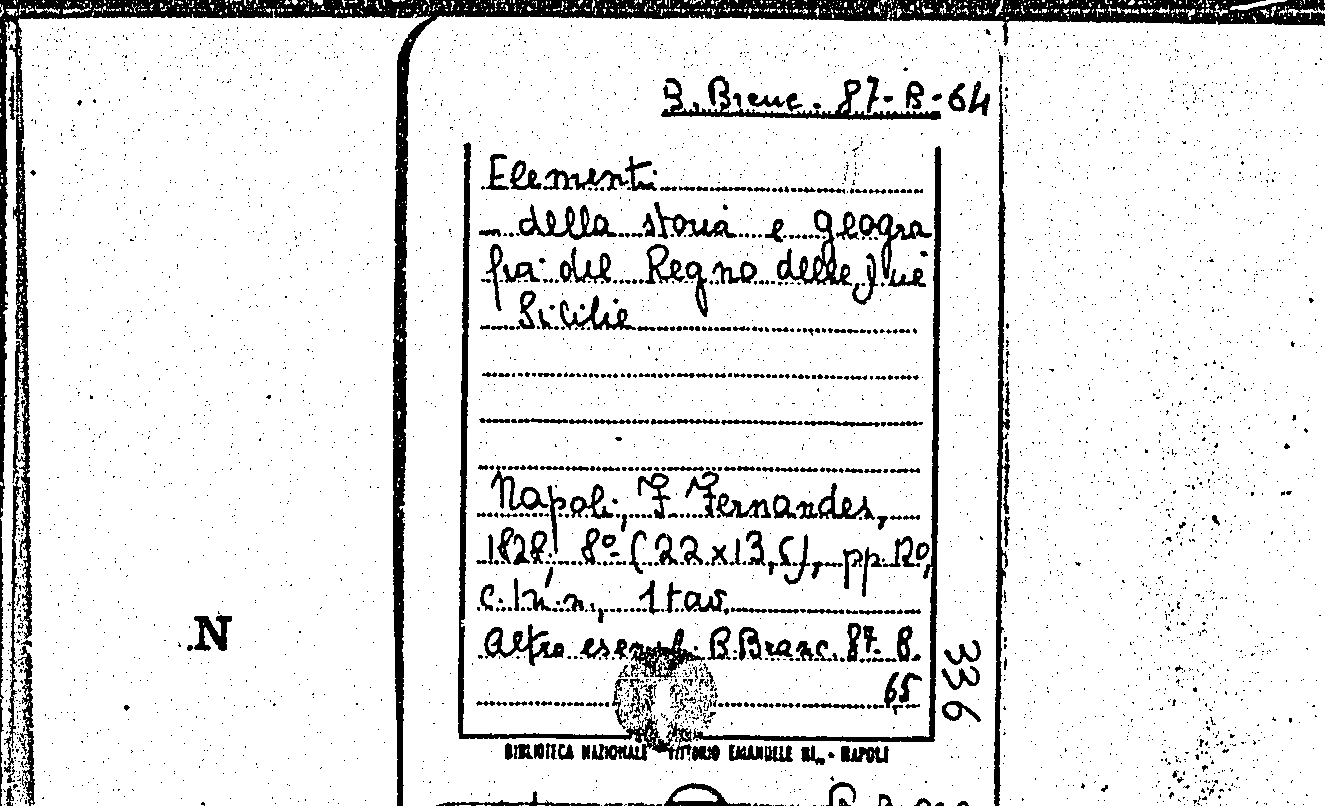 B. Branc. 87-B-64
Elementi
della storia e geogra
fia del Regno delle Due
Sicilie
Napoli, F. Fernandes,
1828. 8º (22x13,5), pp. 120,
c. 1 n.n., 1 tav.
Altro esempl. B. Branc. 87. B.
65
336
.N
BIBLIOTECA NAZIONALE VITTORIO EMANUELE III. - NAPOLI